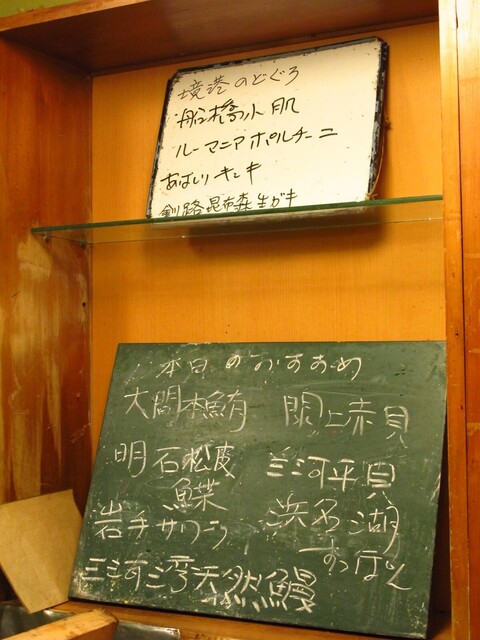 境港のどぐろ
船橋小肌
ルーマニアポルチーニ
あばしりキンキ
釧路昆布森生ガキ
本日のおすすめ
大間本鮪
明石松皮鰈
岩手サワラ
三河湾天然鰻
閖上赤貝
三河平貝
浜名湖
すっぽん